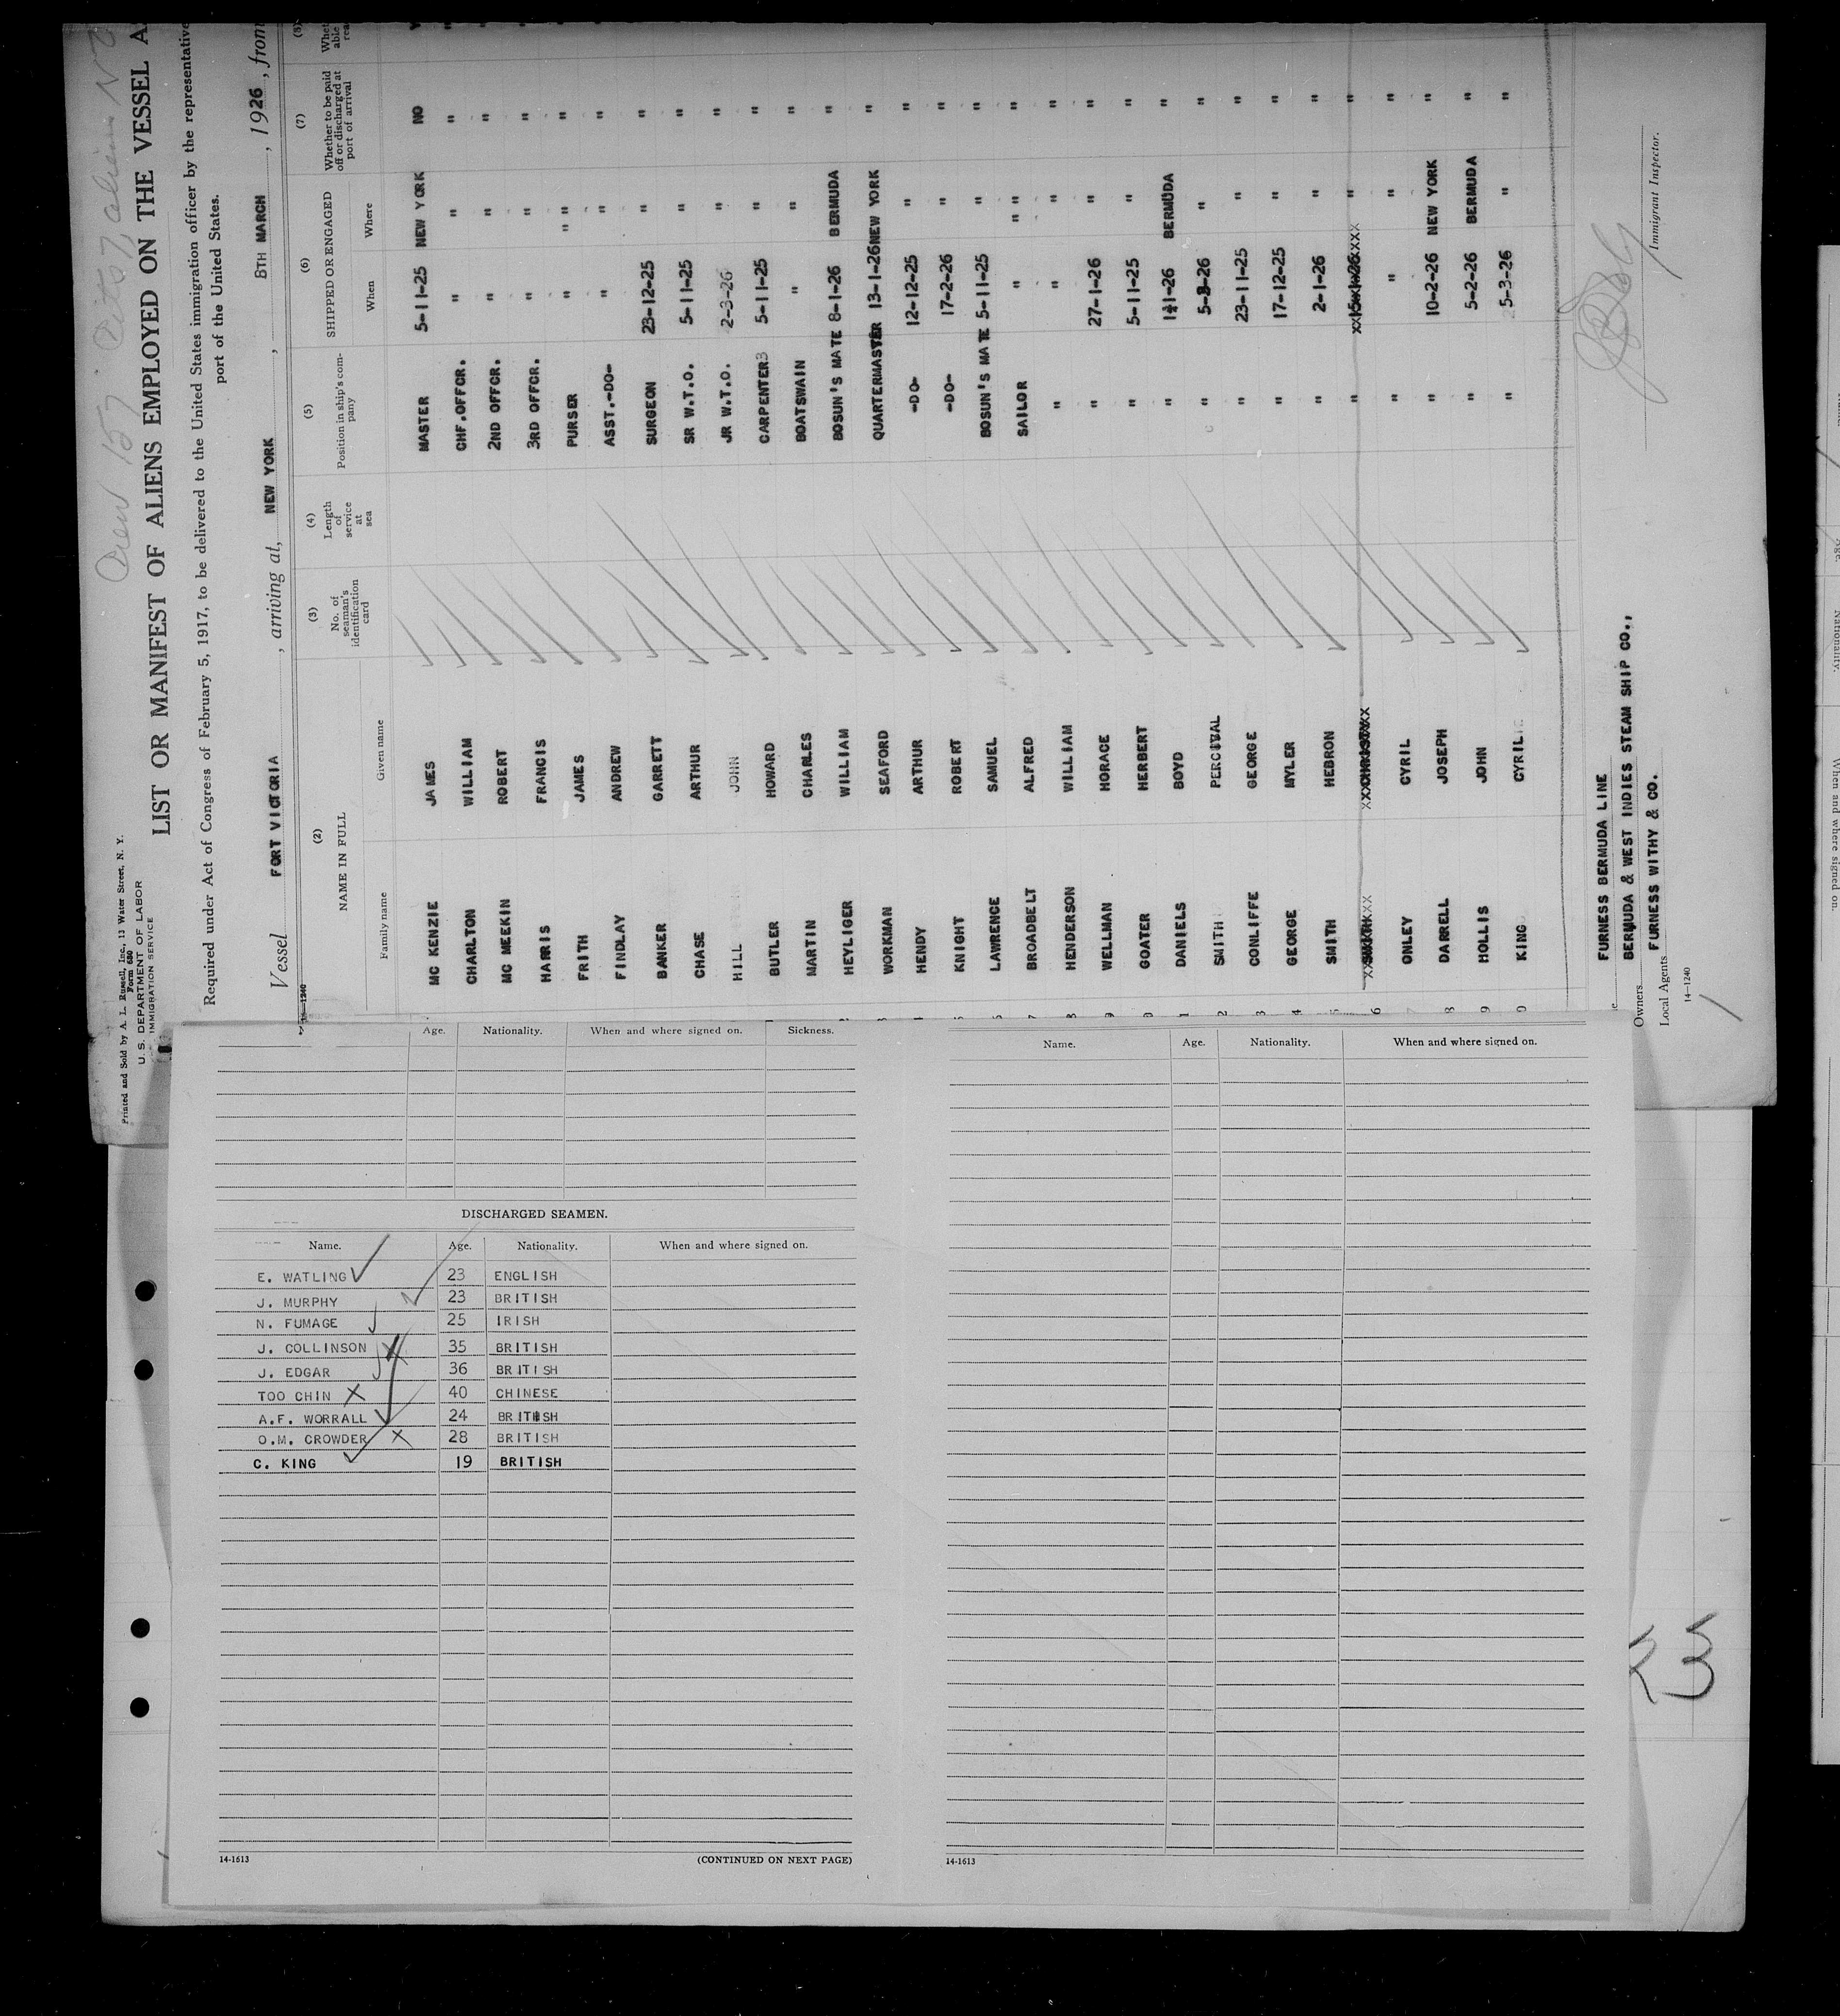 Printed and Sold by A. L. Russell, Inc., 13 Water Street, N. Y.
Form 680
U. S. DEPARTMENT OF LABOR
IMMIGRATION SERVICE
Crew 157
LIST OR MANIFEST OF ALIENS EMPLOYED ON THE VESSEL A
Required under Act of Congress of February 5, 1917, to be delivered to the United States immigration officer by the representative
port of the United States.
Vessel FORT VICTORIA, arriving at, NEW YORK, 8TH MARCH, 1926, from
14-1240
(2) (3) (4) (5) (6) (7) (8)
NAME IN FULL No. of seaman's identification card Length of service at sea Position in ship's company SHIPPED OR ENGAGED Whether to be paid off or discharged at port of arrival
Family name Given name When Where
MC KENZIE JAMES MASTER 5-11-25 NEW YORK NO
CHARLTON WILLIAM CHF.OFFCR. " " "
MC MEEKIN ROBERT 2ND OFFCR. " " "
HARRIS FRANCIS 3RD OFFCR. " " "
FRITH JAMES PURSER " " " "
FINDLAY ANDREW ASST.-DO- " " "
BANKER GARRETT SURGEON 23-12-25 " "
CHASE ARTHUR SR W.T.O. 5-11-25 " "
HILL JOHN JR W.T.O. 2-3-26 " "
BUTLER HOWARD CARPENTER3 5-11-25 " "
MARTIN CHARLES BOATSWAIN " " "
HEYLIGER WILLIAM BOSUN'S MATE 8-1-26 BERMUDA "
WORKMAN SEAFORD QUARTERMASTER 13-1-26 NEW YORK "
HENDY ARTHUR -DO- 12-12-25 " "
KNIGHT ROBERT -DO- 17-2-26 " "
LAWRENCE SAMUEL BOSUN'S MATE 5-11-25 " "
BROADBELT ALFRED SAILOR " " " "
HENDERSON WILLIAM " " " "
WELLMAN HORACE " 27-1-26 " "
GOATER HERBERT " 5-11-25 " "
DANIELS BOYD " 1-26 BERMUDA "
SMITH PERCIVAL " 5-3-26 " "
CONLIFFE GEORGE " 23-11-25 " "
GEORGE MYLER " 17-12-25 " "
SMITH HEBRON " 2-1-26 " "
ONLEY CYRIL " " " "
DARRELL JOSEPH " 10-2-26 NEW YORK "
HOLLIS JOHN " 5-2-26 BERMUDA "
KING CYRIL " 5-3-26 " "
FURNESS BERMUDA LINE
Owners BERMUDA & WEST INDIES STEAM SHIP CO.,
Local Agents FURNESS WITHY & CO.
14-1240
Immigrant Inspector.
Age. Nationality. When and where signed on. Sickness.
DISCHARGED SEAMEN.
Name. Age. Nationality. When and where signed on.
E. WATLING 23 ENGLISH
J. MURPHY 23 BRITISH
N. FUMAGE 25 IRISH
J. COLLINSON 35 BRITISH
J. EDGAR 36 BRITISH
TOO CHIN 40 CHINESE
A.F. WORRALL 24 BRITISH
O.M. CROWDER 28 BRITISH
C. KING 19 BRITISH
14-1613 (CONTINUED ON NEXT PAGE)
Name. Age. Nationality. When and where signed on.
14-1613
Age. Nationality. When and where signed on.